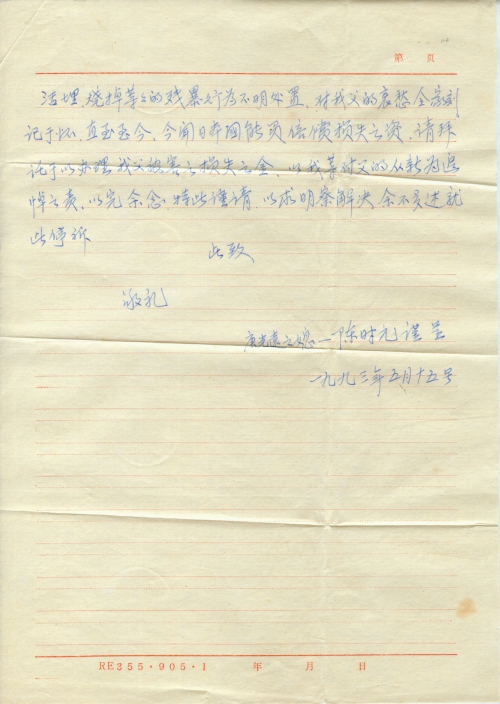 第 页
活埋、烧掉等之的残暴行为不明处置、对我父的哀愁全家刻
记于怀、直至至今、今闻日本国能够赔偿损失之资、请拜
托予以办理我父被害之损失之金、以我等对父的从新为追
悼之责、以完余念、特此谨请、以求明察解决、余不多述就
此停诉
此致
敬礼
陈时光谨呈
一九九三年五月十五号
RE355·905·1 年 月 日